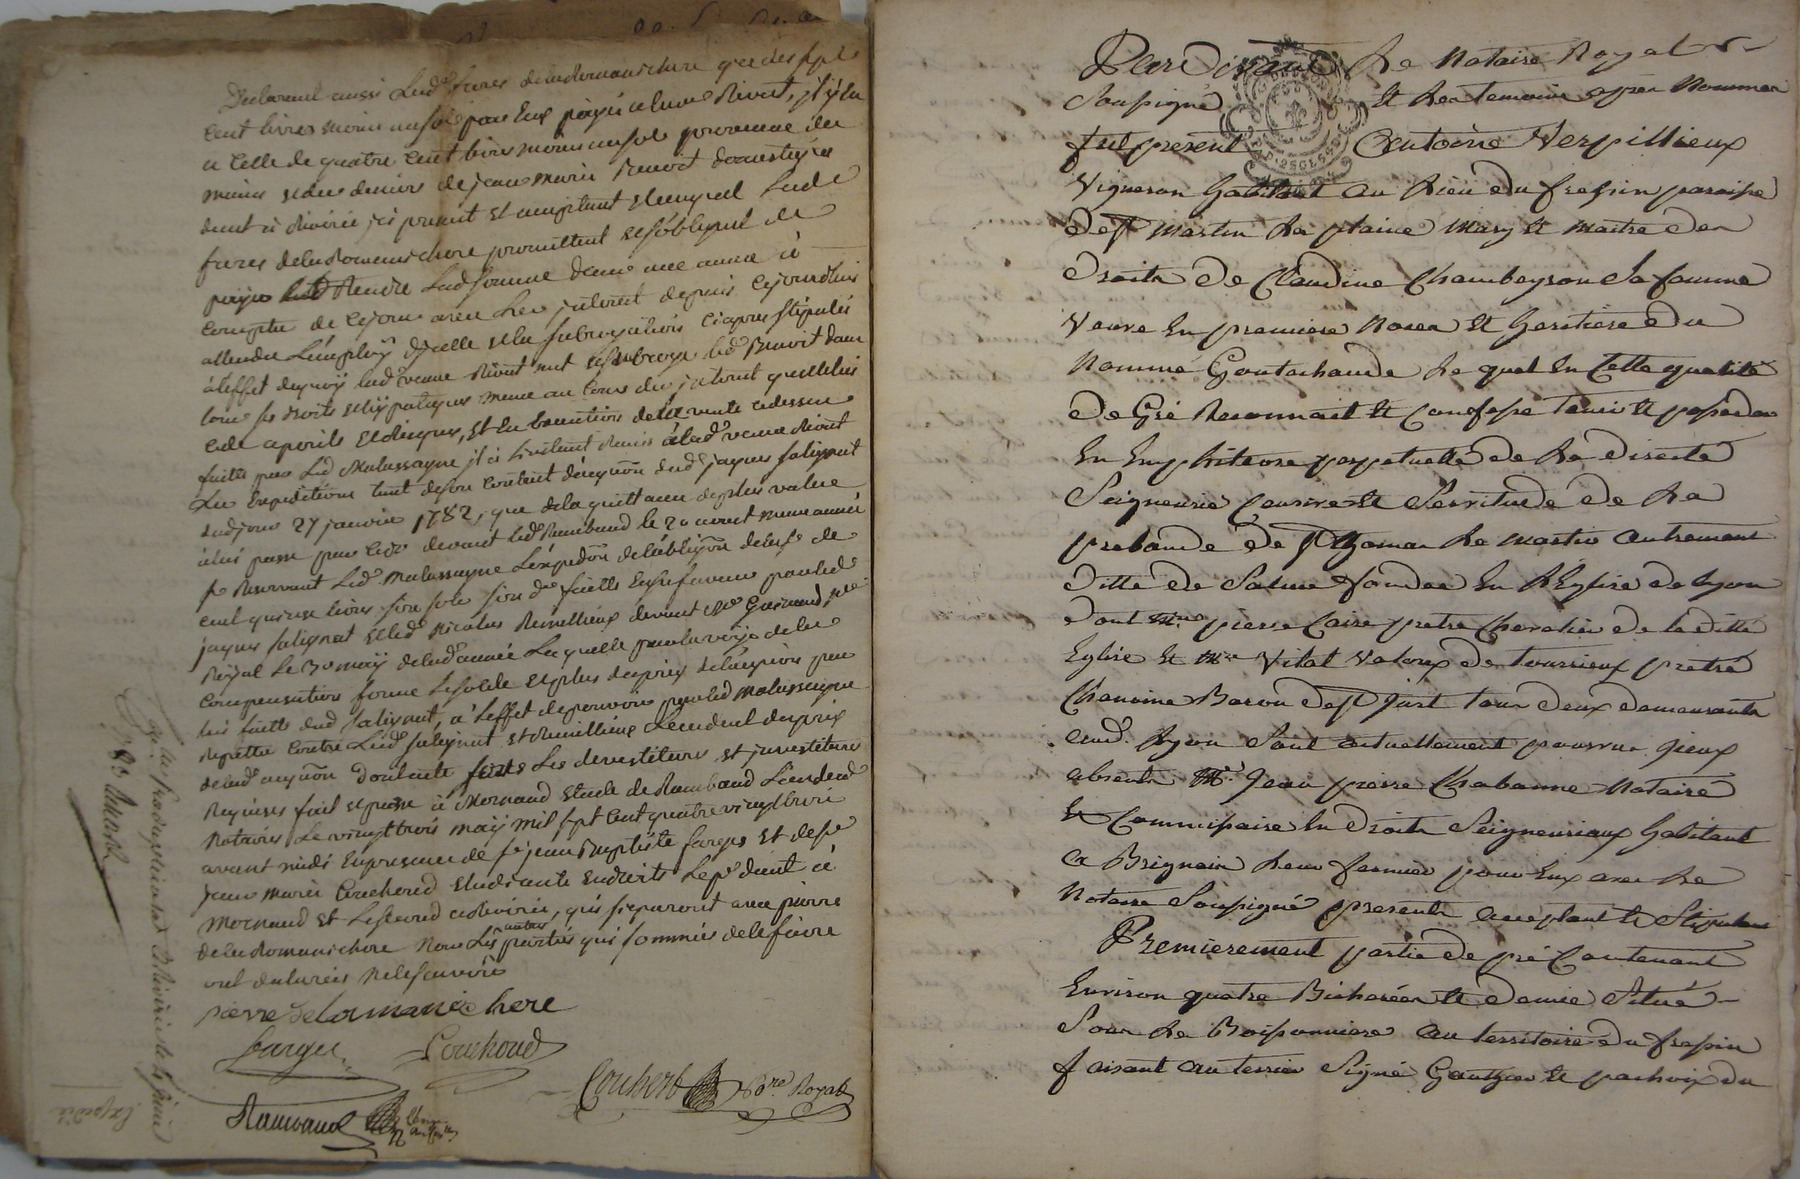 Declarent aussi Lesd. freres delaRomanichere que des sept
cent livres moins un sol par Eux payés a la veuve Rivat, il y en
a celle de quatre cent livres moins un sol provenue des
mains et des deniers de jean marie Benoit domestique
dant à Riverie ici present et acceptant et lesquel Lesd.
freres delaRomanichere promettent et s'obligent de
payer Rendre Lad. somme dans une année à
compter de ce jour avec Les interet depuis cejourdhuis
attendu L'employ d'jcelle et la subrogation ci apres stipulée
à l'effet dequoy lad. veuve Rivat met et subroge led. Benoit dans
tous ses droits et hypoteques meme au cours des interet qu'elle lui
cede a perils et Risques, Et En Execution de la vente cidessus
faitte par Led. Malassagne il a à l'instant Remis à lad. veuve Rivat
Les Expeditions tant de son contrat d'acquon dud. jaques salignat
dud. jour 27 janvier 1782, que de la quittance de plus value
à lui passé par led. devant led. Rambaud le 20 aoust meme année
se Reservant Led. Malassagne L'expedon de l'obligon de la se de
cent quinze livres six sols six ds. faitte En sa faveur par led.
jaques salignat et led. Nicolas Remillieux devant Me Guerinaud, Nre
Royal Le 30 may de lad. année Laquelle par la voye de la
compensation forme Le solde et plus du prix de l'acquion par
lui faitte dud. salignat, à L'effet de pouvoir par led. Malassagne
Repetter contre Led. salignat et Remillieux L'excedent du prix
de lad. acquon Dont acte faits Les devestitures et jnvestitures
Requises fait et passé à Mornand Etude de Rambaud L'un desd.
Notaires Le vingt trois may mil sept cent quatre vingt trois
avant midi En presence de sr jean Baptiste farges et de sr
jean marie Couchoud Etudiants En droits Le pr dant à
Mornand et Le second à Riverie, qui signeront avec pierre
delaRomanichere Non Les autres parties qui sommées de le faire
ont declarées Ne le sçavoir
pierre delaromanichere
farges Couchoud
Couhert Nore. Royal
Rambaud
Par Devant Le Notaire Royal
Soussigné Et Les temoins apres Nommés
fut present Antoine Verpillieux
Vigneron habitant au Lieu du fressin paroisse
de St Martin La plaine Mary et Maitre des
droits de Claudine Chambeyron sa femme
Veuve En premiere Noces et heritiere du
Nommé Goutachaude Lequel En Cette qualité
de Gré Reconnait et Confesse tenir et posseder
En Emphiteose perpetuelle de La directe
Seigneurie Censive et Servitude de La
prebande de St Thomas Le Martir autrement
ditte de Salme fondée En L'Eglise de Lyon
dont Mre pierre Caire pretre Chevalier de la ditte
Eglise et Mre Vital Valoux de Toursieux pretre
Chanoine Baron de St Just tous deux demeurants
aud. Lyon Sont actuellement pourvus jceux
absents Me Jean pierre Chabanne Notaire
Et Commissaire En droits Seigneuriaux habitant
a Brignais Leur fermier pour Eux avec Le
Notaire Soussigné presents acceptant et Stipulants
Premierement partie de pré Contenant
Environ quatre Bicherées et demie Situé
Sous La Boissonniere au territoire du fressin
faisant au terrier Signé Ganthier et pachoix du